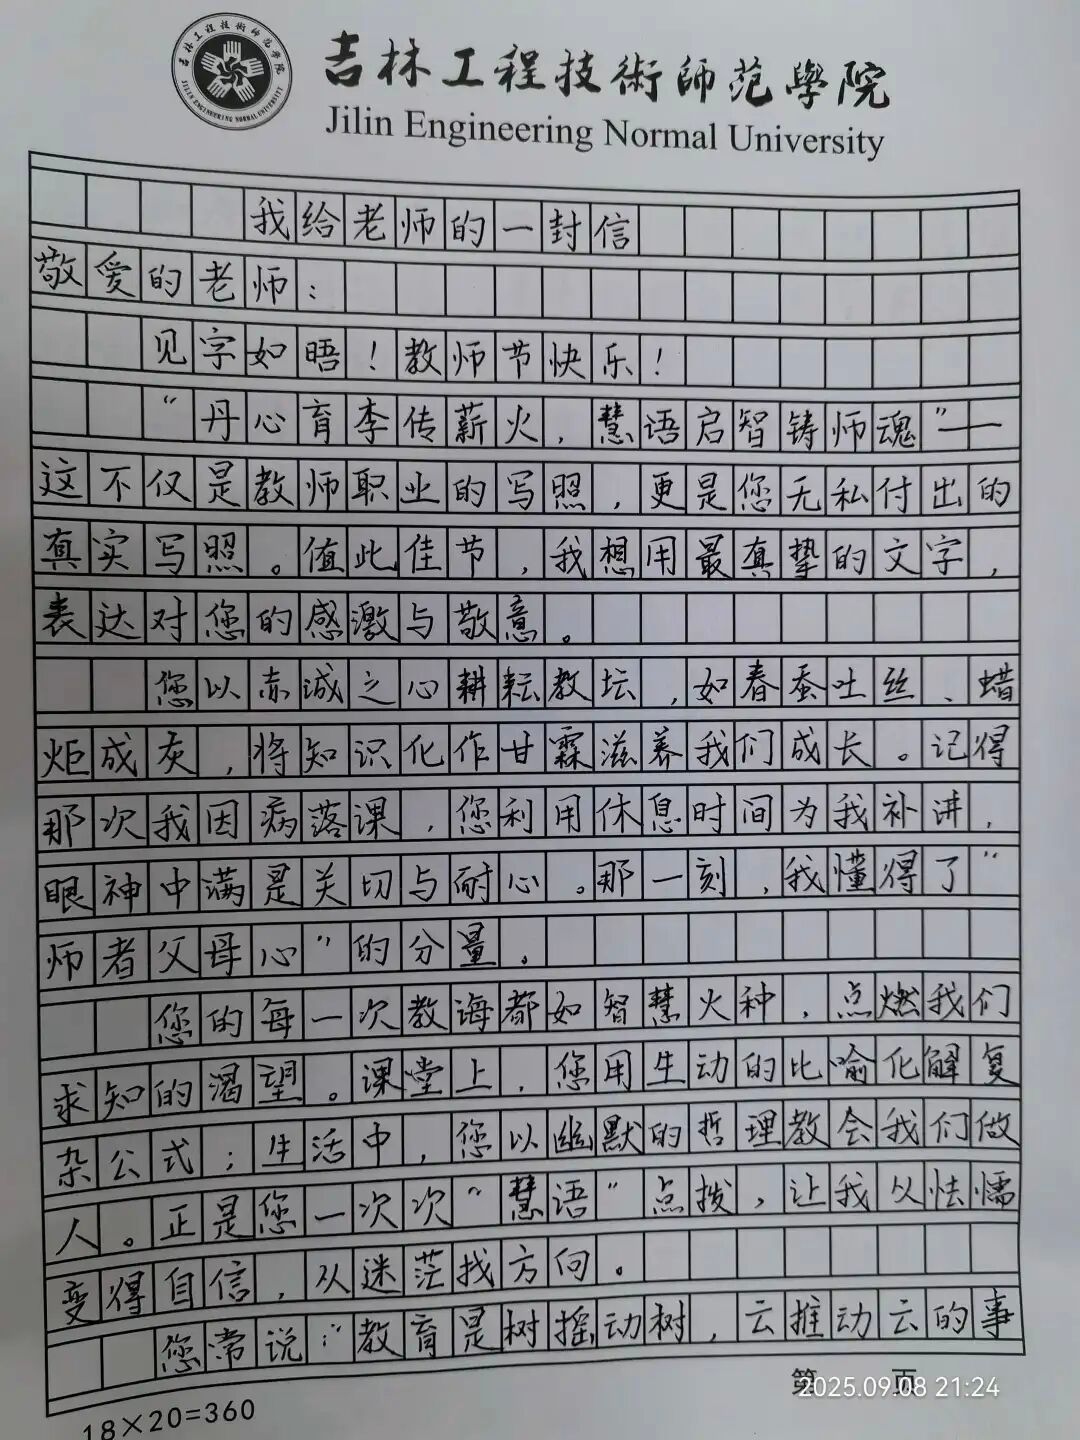 吉林工程技術師范學院
Jilin Engineering Normal University
我给老师的一封信
敬爱的老师：
见字如晤！教师节快乐！
“丹心育李传薪火，慧语启智铸师魂”——
这不仅是教师职业的写照，更是您无私付出的
真实写照。值此佳节，我想用最真挚的文字，
表达对您的感激与敬意。
您以赤诚之心耕耘教坛，如春蚕吐丝、蜡
炬成灰，将知识化作甘霖滋养我们成长。记得
那次我因病落课，您利用休息时间为我补讲，
眼神中满是关切与耐心。那一刻，我懂得了“
师者父母心”的分量。
您的每一次教诲都如智慧火种，点燃我们
求知的渴望。课堂上，您用生动的比喻化解复
杂公式；生活中，您以幽默的哲理教会我们做
人。正是您一次次“慧语”点拨，让我从怯懦
变得自信，从迷茫找方向。
您常说：“教育是树摇动树，云推动云的事
第 页
2025.09.08 21:24
18×20=360